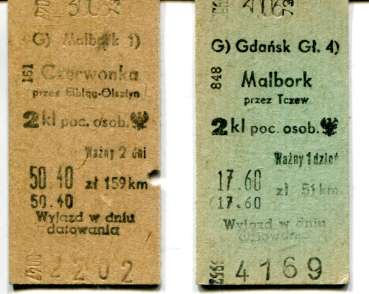 G) Malbork 1)
161
Czerwonka
przez Elbląg-Olsztyn
2 kl poc. osob.
Ważny 2 dni
50.40 zł 159 km
50.40
Wyjazd w dniu
datowania
2202
G) Gdańsk Gł. 4)
848
Malbork
przez Tczew
2 kl poc. osob.
Ważny 1 dzień
17.60 zł 51 km
17.60
Wyjazd w dniu
4169